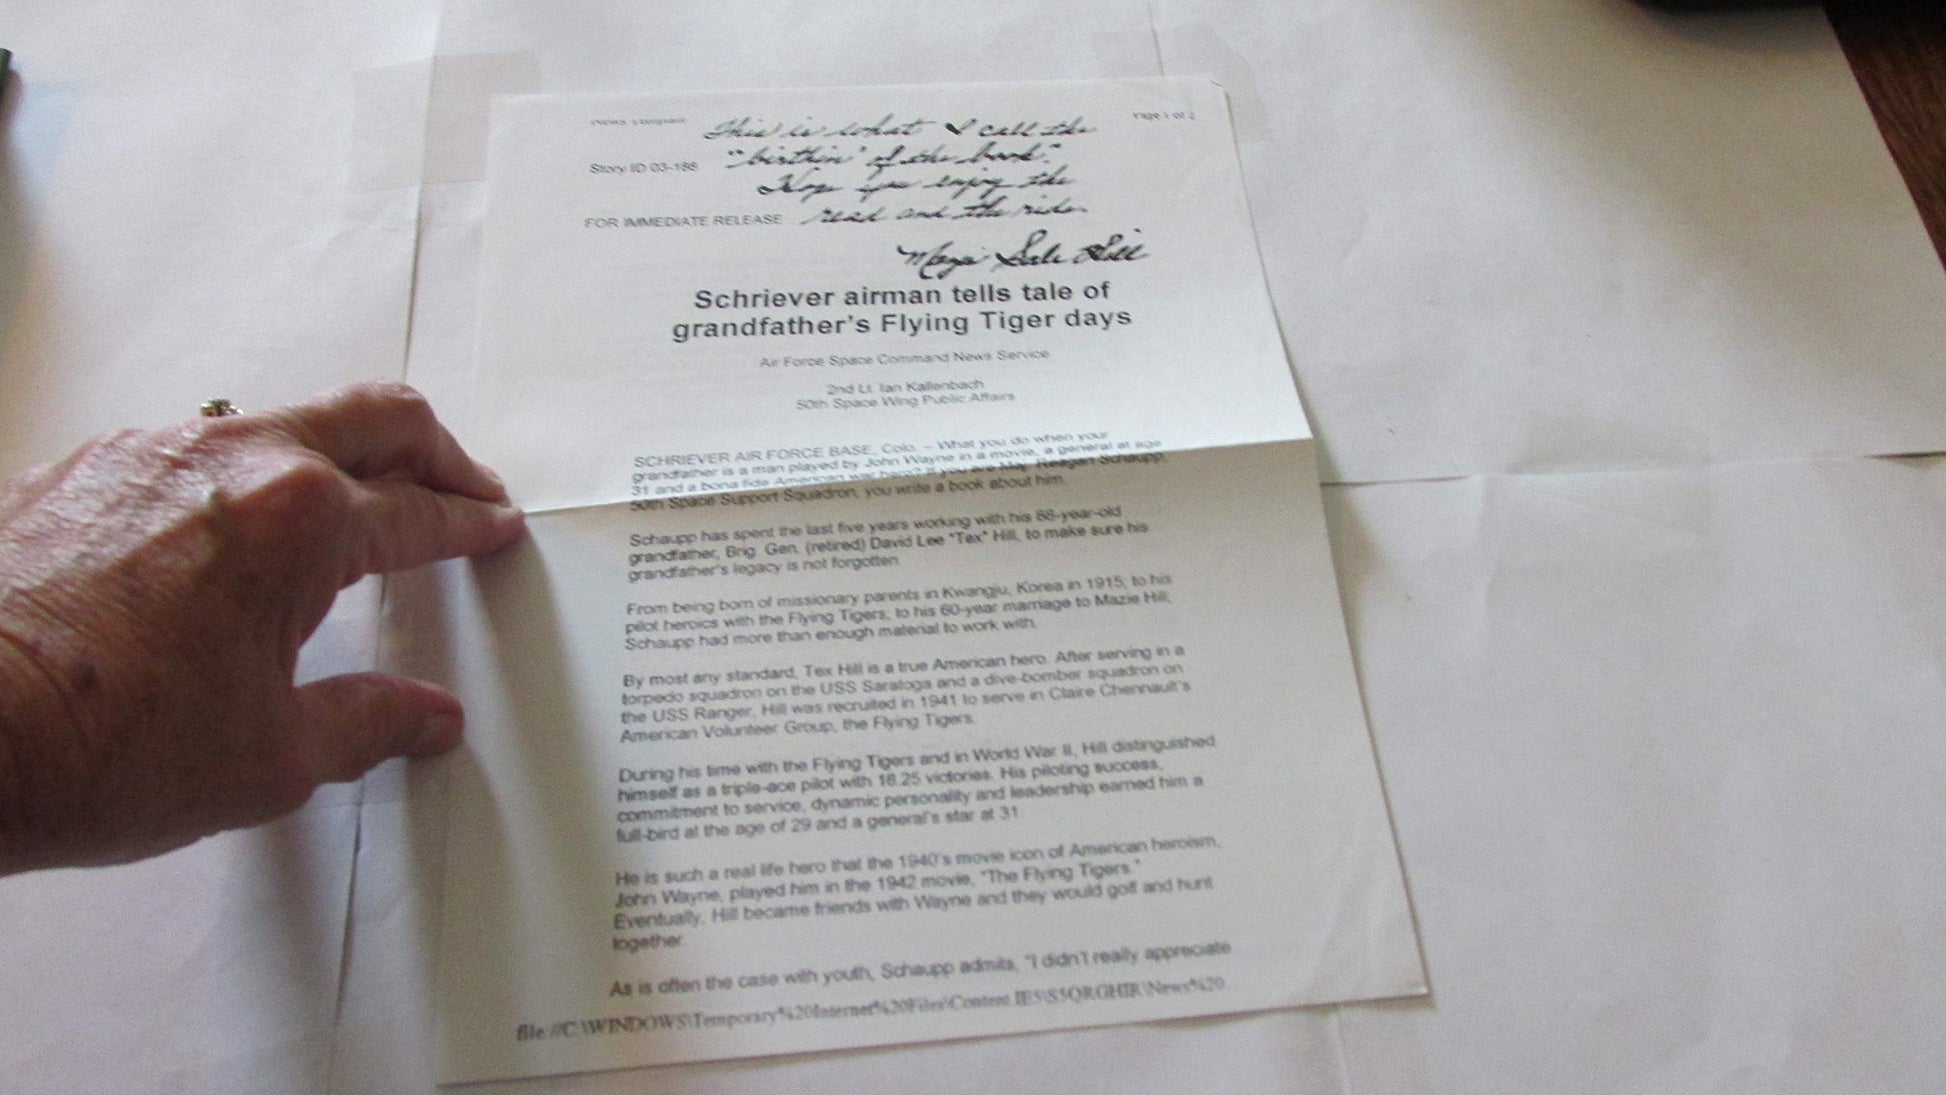 News Template Page 1 of 2
This is what I call the
"birthin' of the book".
Hope you enjoy the
Story ID 03-188
read and the ride.
FOR IMMEDIATE RELEASE
Mazie Sale Hill
Schriever airman tells tale of
grandfather's Flying Tiger days
Air Force Space Command News Service
2nd Lt. Ian Kallenbach
50th Space Wing Public Affairs
SCHRIEVER AIR FORCE BASE, Colo. – What you do when your
grandfather is a man played by John Wayne in a movie, a general at age
31 and a bona fide American war hero? If you are Maj. Reagan Schaupp,
50th Space Support Squadron, you write a book about him.
Schaupp has spent the last five years working with his 88-year-old
grandfather, Brig. Gen. (retired) David Lee "Tex" Hill, to make sure his
grandfather's legacy is not forgotten.
From being born of missionary parents in Kwangju, Korea in 1915; to his
pilot heroics with the Flying Tigers; to his 60-year marriage to Mazie Hill,
Schaupp had more than enough material to work with.
By most any standard, Tex Hill is a true American hero. After serving in a
torpedo squadron on the USS Saratoga and a dive-bomber squadron on
the USS Ranger, Hill was recruited in 1941 to serve in Claire Chennault's
American Volunteer Group, the Flying Tigers.
During his time with the Flying Tigers and in World War II, Hill distinguished
himself as a triple-ace pilot with 18.25 victories. His piloting success,
commitment to service, dynamic personality and leadership earned him a
full-bird at the age of 29 and a general's star at 31
He is such a real life hero that the 1940's movie icon of American heroism,
John Wayne, played him in the 1942 movie, "The Flying Tigers."
Eventually, Hill became friends with Wayne and they would golf and hunt
together.
As is often the case with youth, Schaupp admits, "I didn't really appreciate
file://C:\WINDOWS\Temporary%20Internet%20Files\Content.IE5\S5QRGHIR\News%20